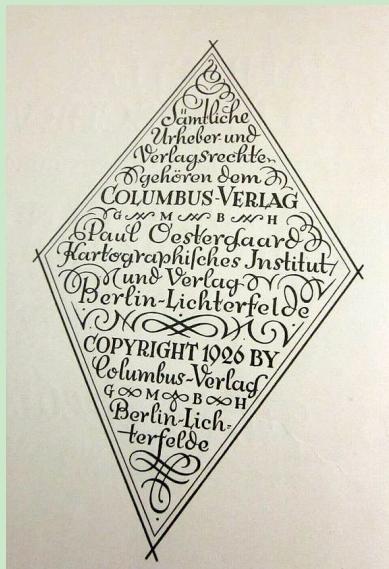 Sämtliche
Urheber- und
Verlagsrechte
gehören dem
COLUMBUS-VERLAG
G M B H
Paul Oestergaard
Kartographisches Institut
und Verlag
Berlin-Lichterfelde
COPYRIGHT 1926 BY
Columbus-Verlag
G M B H
Berlin-Lich-
terfelde